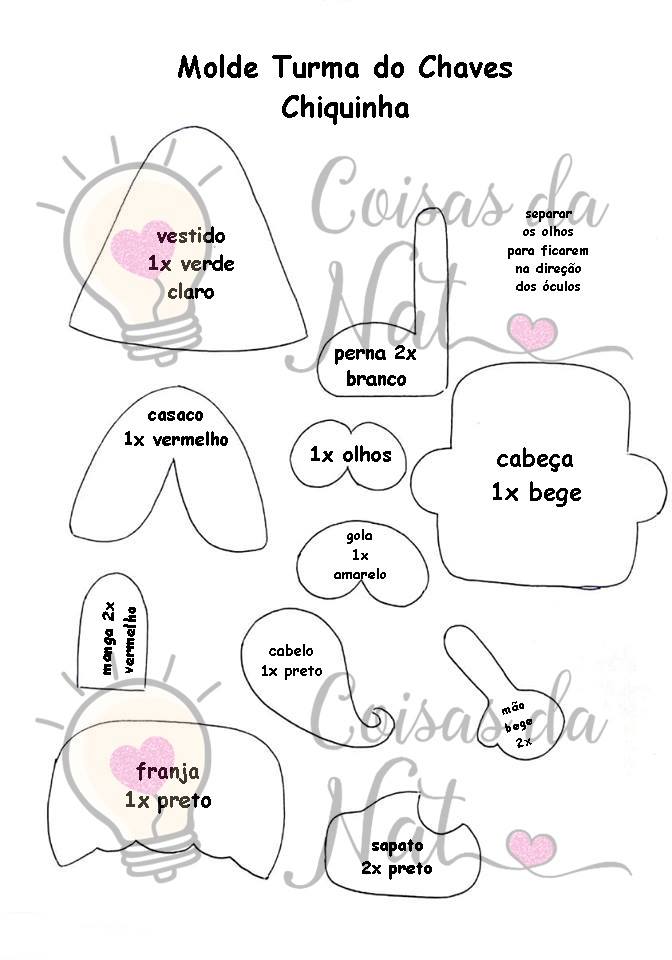 Molde Turma do Chaves
Chiquinha
Coisas da
Nat
vestido
1x verde
claro
separar
os olhos
para ficarem
na direção
dos óculos
perna 2x
branco
casaco
1x vermelho
1x olhos
cabeça
1x bege
gola
1x
amarelo
manga 2x
vermelho
cabelo
1x preto
mão
bege
2x
Coisas da
Nat
franja
1x preto
sapato
2x preto